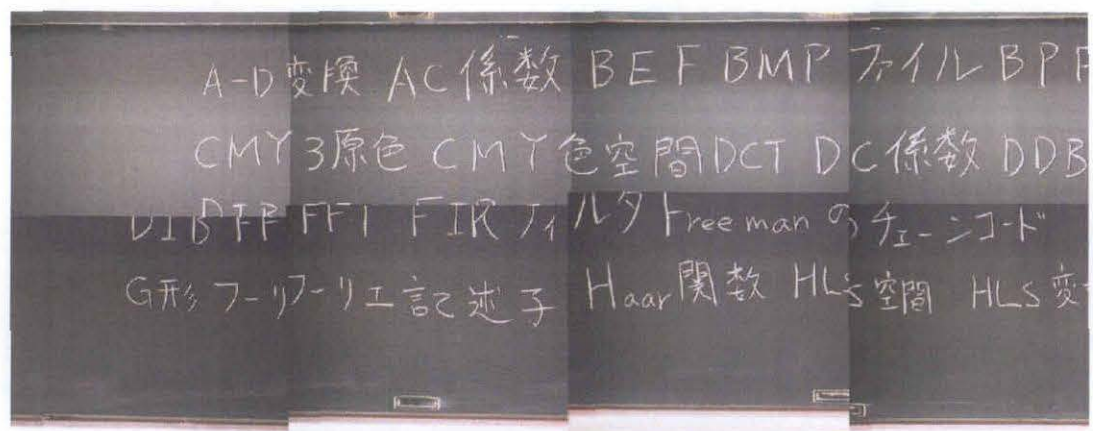 A-D変換 AC係数 BEF BMPファイル BPF
CMY3原色 CMY色空間 DCT DC係数 DDB
DIB DFP FFT FIRフィルタ Freemanのチェーンコード
G形フーリフーリエ記述子 Haar関数 HLS空間 HLS変